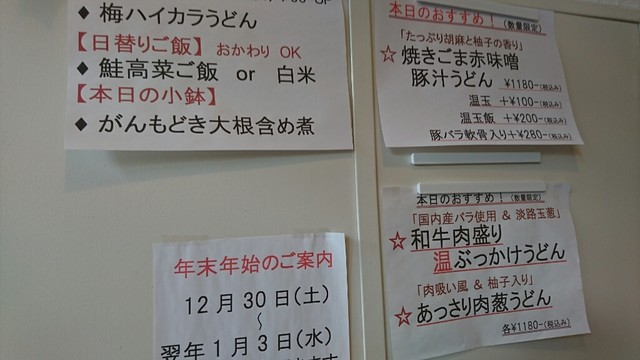 ◆ 梅ハイカラうどん
【日替りご飯】 おかわり OK
◆ 鮭高菜ご飯 or 白米
【本日の小鉢】
◆ がんもどき大根含め煮
年末年始のご案内
12月30日(土)
～
翌年1月3日(水)
本日のおすすめ！(数量限定)
「たっぷり胡麻と柚子の香り」
☆焼きごま赤味噌
豚汁うどん ¥1180-(税込み)
温玉 +¥100-(税込み)
温玉飯 +¥200-(税込み)
豚バラ軟骨入り+¥280-(税込み)
本日のおすすめ！(数量限定)
「国内産バラ使用 & 淡路玉葱」
☆和牛肉盛り
温ぶっかけうどん
「肉吸い風 & 柚子入り」
☆あっさり肉葱うどん
各¥1180-(税込み)